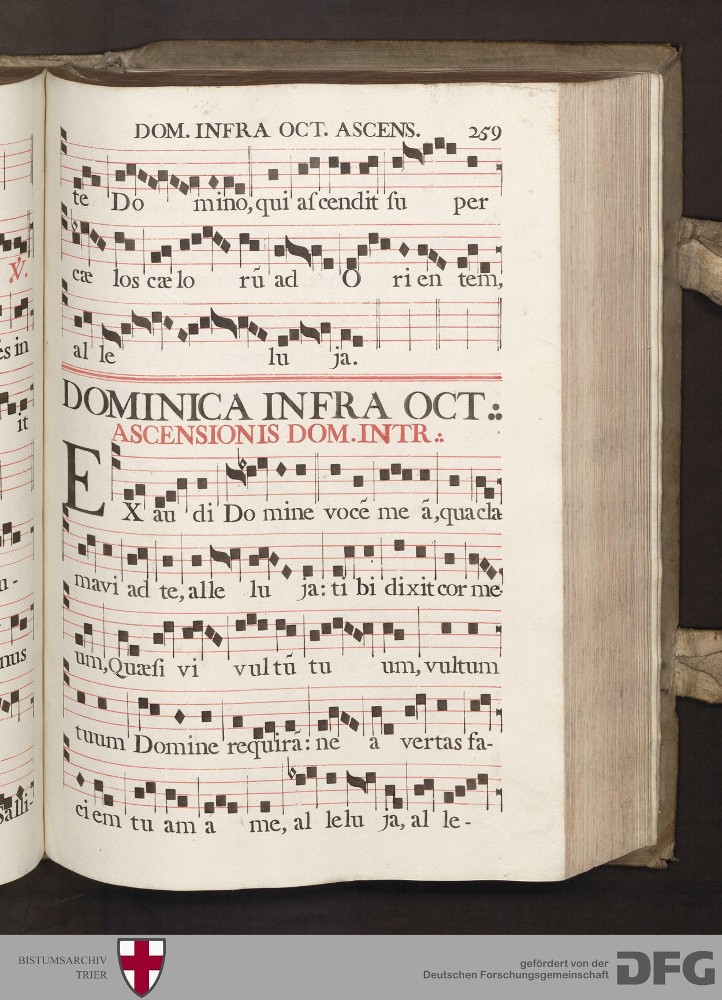 DOM. INFRA OCT. ASCENS. 259
te Do mino, qui ascendit su per
cæ los cælo rũ ad O rien tem,
al le lu ja.
DOMINICA INFRA OCT:.
ASCENSIONIS DOM. INTR:.
EX au di Domine vocẽ me ã, qua cla
mavi ad te, alle lu ja: ti bi dixit cor me-
um, Quæsi vi vultũ tu um, vultum
tuum Domine requirã: ne a vertas fa-
ciem tu am á me, al lelu ja, al le-
℣.
és in
it
u-
nus
Salli-
BISTUMSARCHIV
TRIER
gefördert von der
Deutschen Forschungsgemeinschaft
DFG